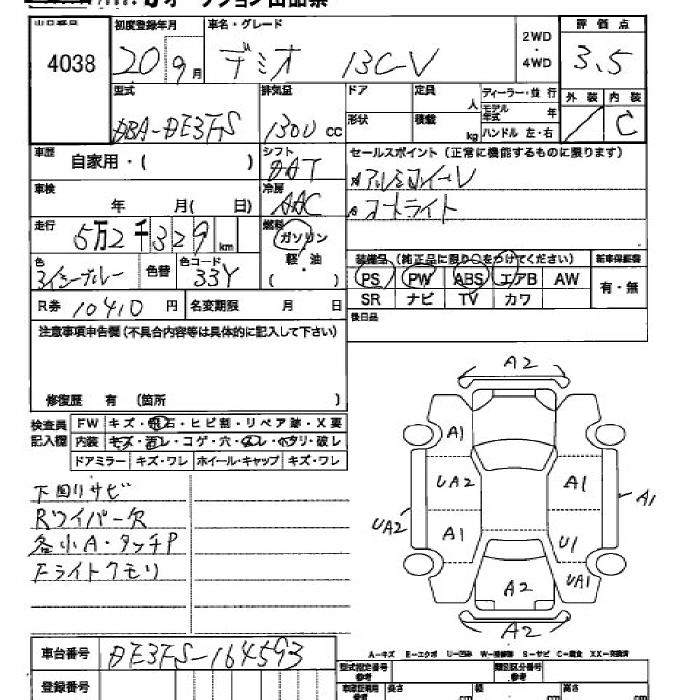 4038
初度登録年月
車名・グレード
20
9月
デミオ
13C-V
2WD
・
4WD
評価点
3.5
型式
DBA-DE3FS
排気量
1300 cc
ドア
定員
人
形状
積載
kg
ディーラー・並行
モデル年式
年
ハンドル 左・右
外装
内装
C
車歴
自家用・( )
シフト
車検
年 月( 日)
冷房
AAC
セールスポイント(正常に機能するものに限ります)
アルミホイール
オートライト
走行
5万2千329 km
燃料
ガソリン
軽・油
( )
色
色替
色コード
33Y
装備品(純正品に限り○をつけてください)
新車保証書
PS PW ABS エアB AW
有・無
SR ナビ TV カワ
後日品
R券
10410 円
名変期限 月 日
注意事項申告欄(不具合内容等は具体的に記入して下さい)
修復歴 有 (箇所 )
検査員
記入欄
FW キズ・飛石・ヒビ割・リペア跡・X要
内装 キズ・汚レ・コゲ・穴・
ドアミラー キズ・ワレ ホイール・キャップ キズ・ワレ
下回りサビ
Rワイパー欠
各小A・タッチP
Fライトクモリ
A2
A1
UA2
A1
A1
UA2
A1
U1
UA1
A2
A2
車台番号
DE3FS-164593
A-キズ E-エクボ U-凹み W-補修跡 S-サビ C-腐食 XX-交換済
登録番号
型式指定番号
参考
類別区分番号
参考
長さ
cm
幅
cm
高さ
cm